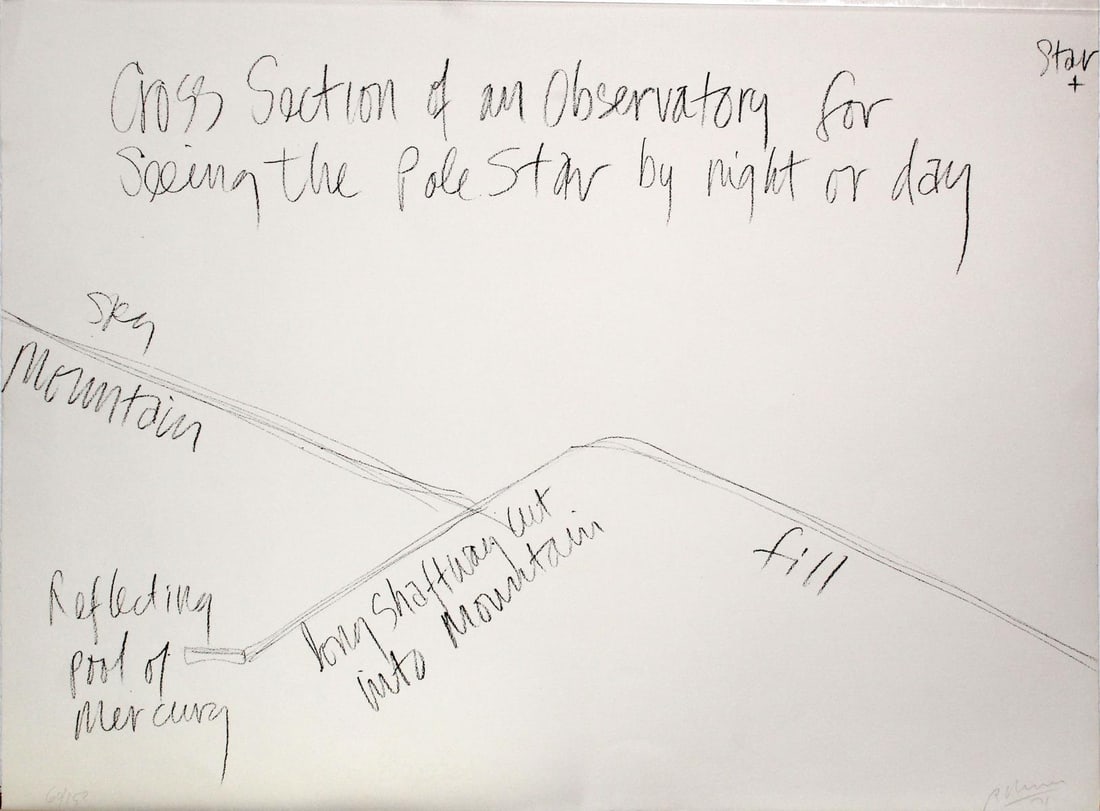 Star
+
Cross Section of an Observatory for
Seeing the Pole Star by night or day
Sky
Mountain
long shaftway cut
into mountain
fill
Reflecting
pool of
Mercury